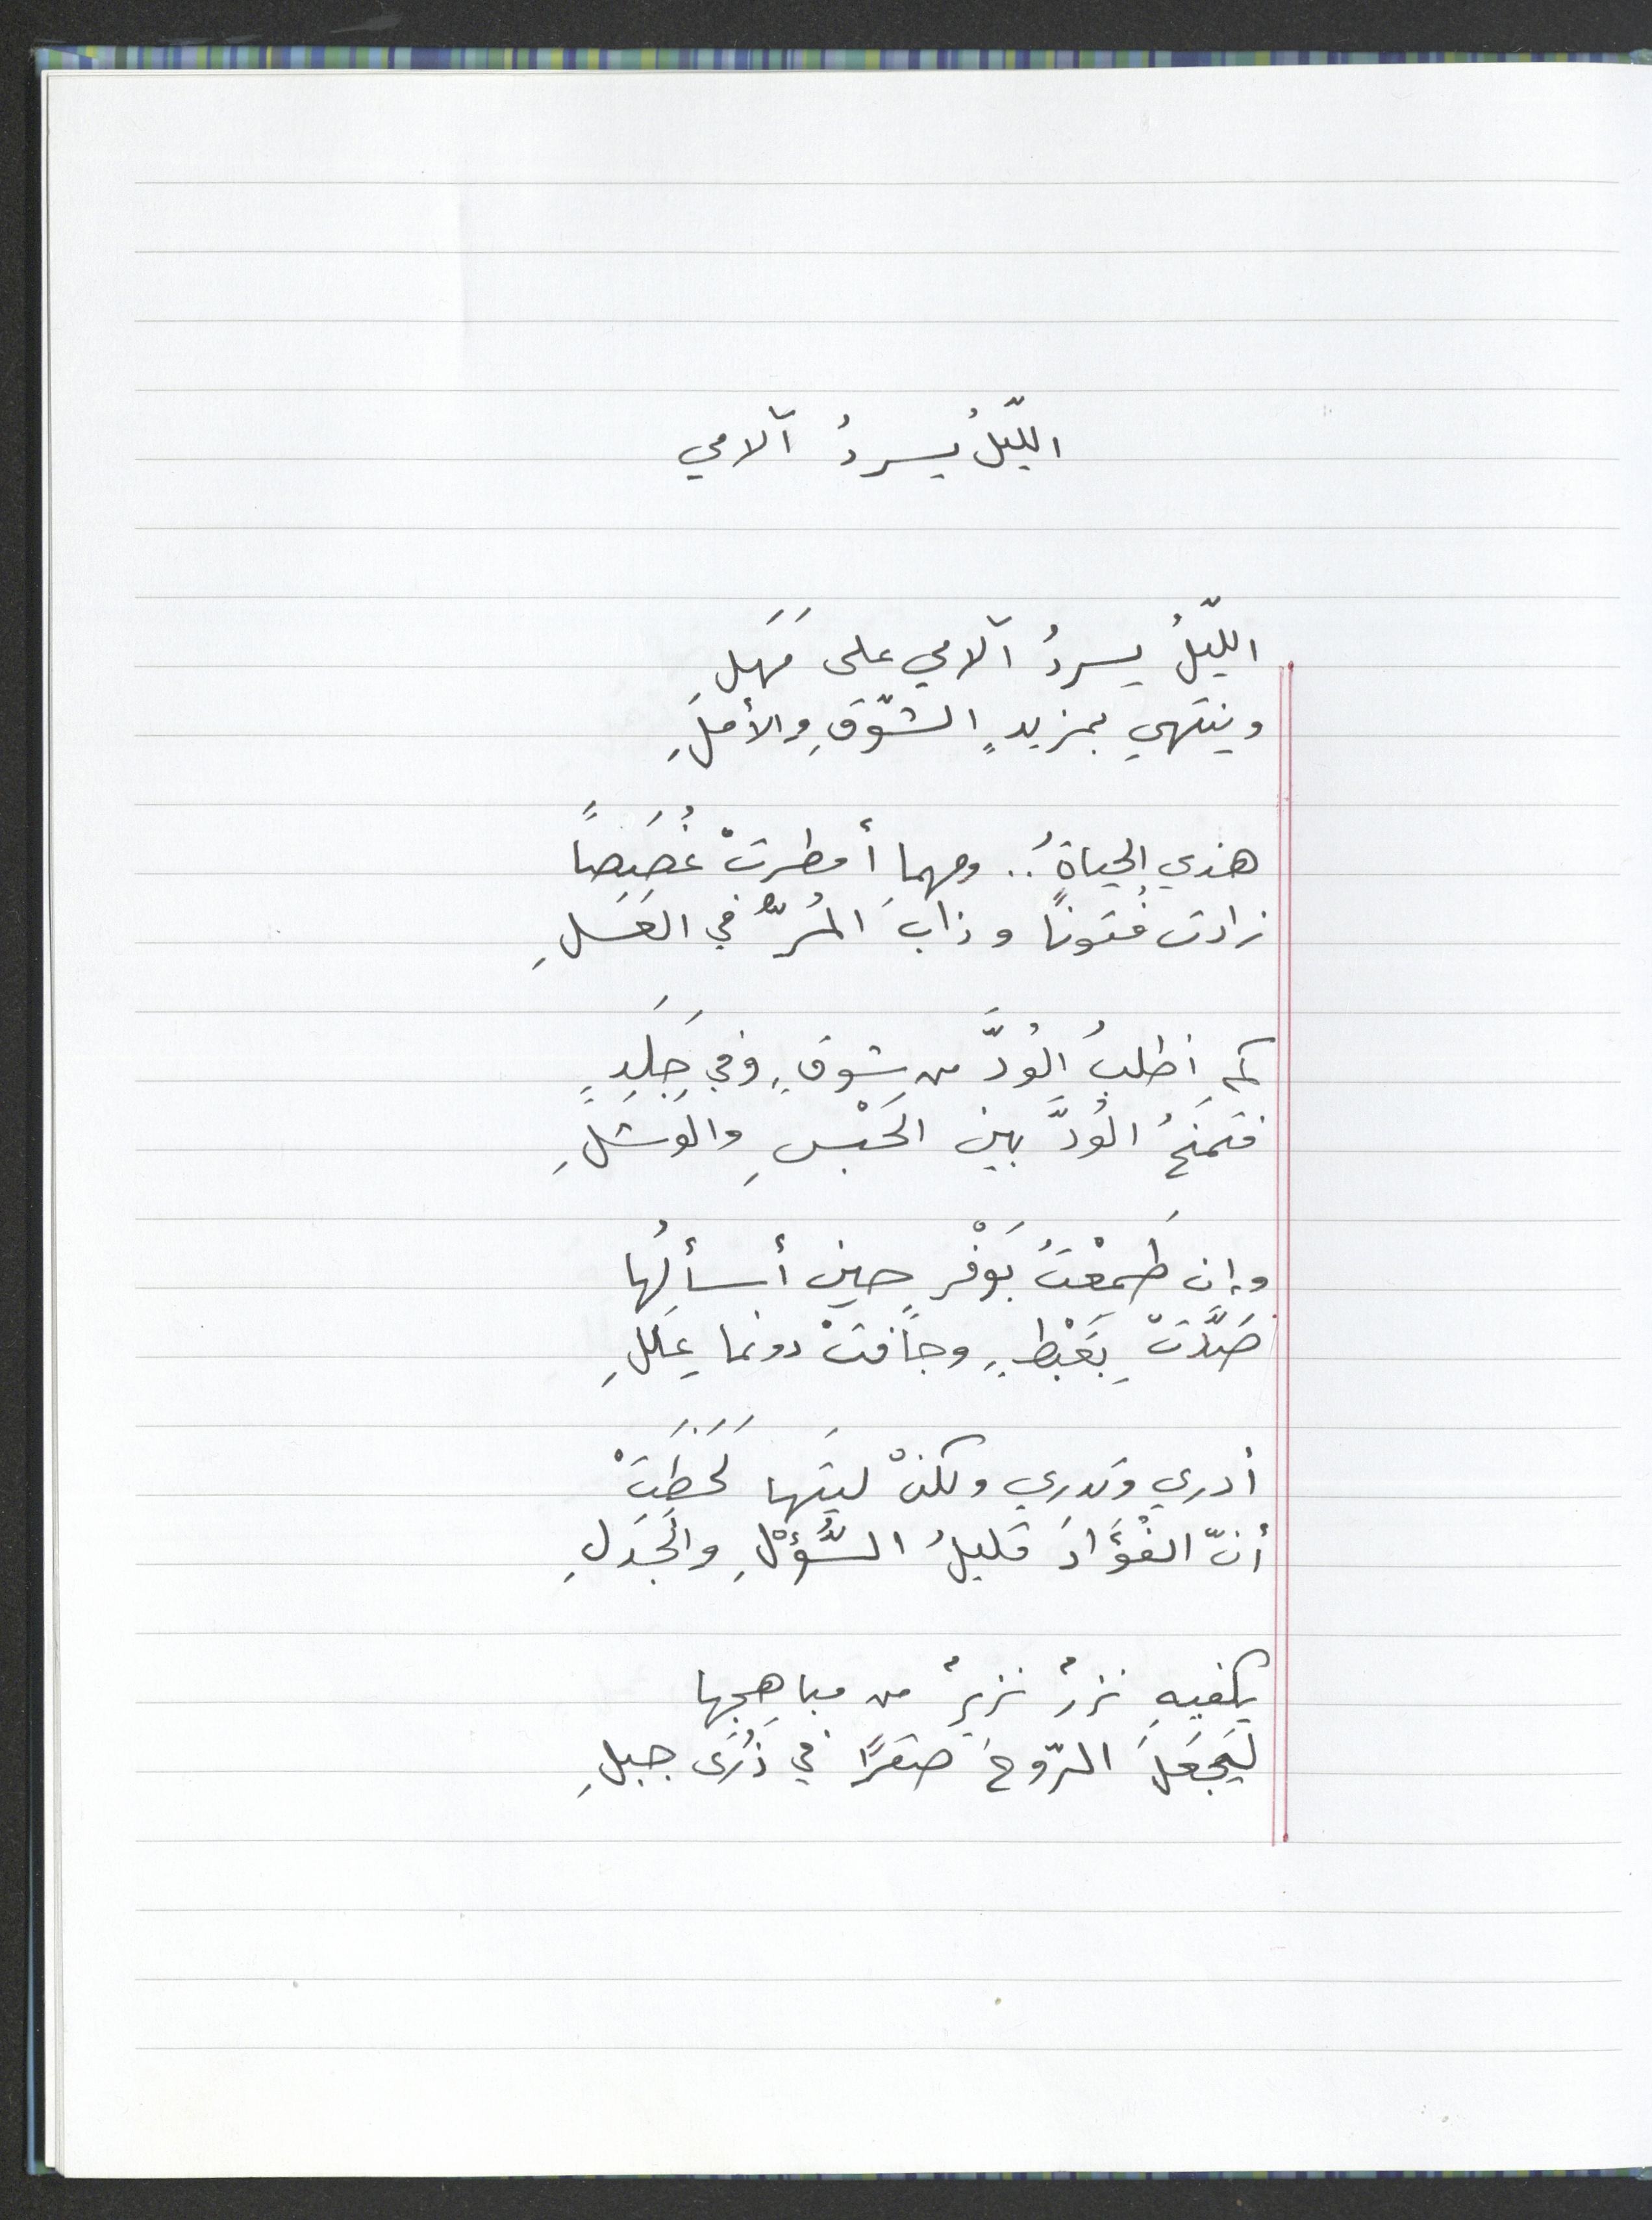 اللّيلُ يسردُ آلامي
اللّيلُ يسردُ آلامي على مَهَلِ
وينتهي بمزيدٍ الشّوقِ والأملِ
هذي الحياةُ .. ومهما أمطرتْ غُصَصاً
زادت فُتونًا وذابَ المُرُّ في العَسَلِ
كم أطلبُ الوُدَّ من شوقٍ وفي جَلَدٍ
فتمنَحُ الوُدَّ بين الحَبْسِ والوَشَلِ
وإن طَمِعْتُ بوَفْرٍ حين أسألُها
صَدَّتْ بِغَبْطٍ وجافتْ دونما عِلَلِ
أدري وتدري ولكنْ ليتَها لَحَظَتْ
أنّ الفُؤَادَ قليلُ السُّؤْلِ والجَدَلِ
يكفيهِ نزرٌ نزيرٌ من مباهِجها
ليَجعَلَ الرّوحَ صقرًا في ذُرَى جبلِ